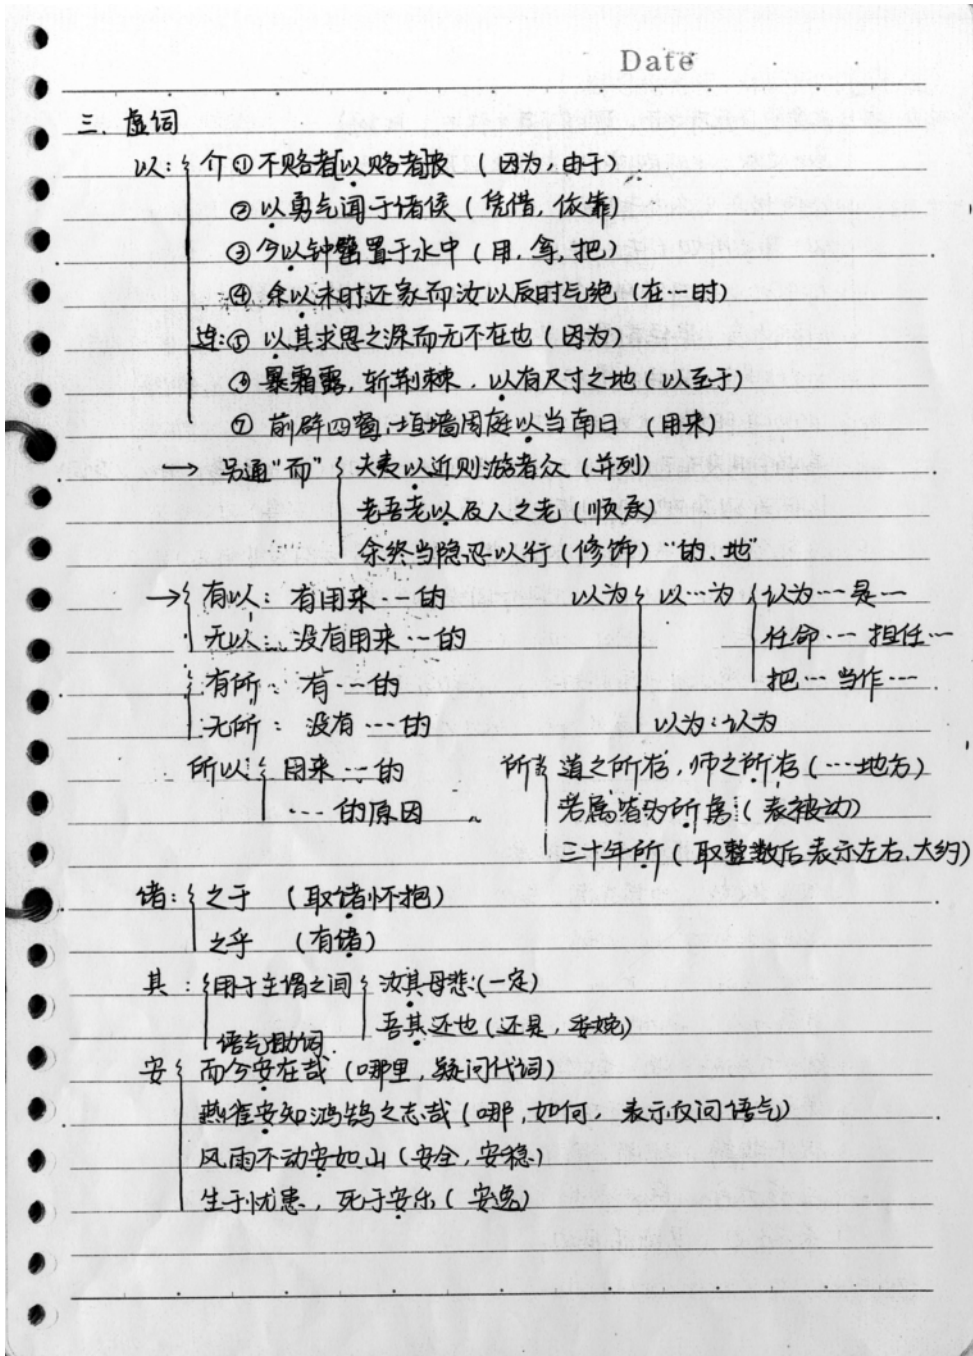 Date
三. 虚词
以: { 介 ① 不赂者以赂者丧 (因为, 由于)
② 以勇气闻于诸侯 (凭借, 依靠)
③ 今以钟磬置于水中 (用, 拿, 把)
④ 余以未时还家而汝以辰时气绝 (在…时)
连: ⑤ 以其求思之深而无不在也 (因为)
⑥ 暴霜露, 斩荆棘, 以有尺寸之地 (以至于)
⑦ 前辟四窗, 垣墙周庭以当南日 (用来)
→ 另通"而" { 夫夷以近则游者众 (并列)
老吾老以及人之老 (顺承)
余终当隐忍以行 (修饰) "的、地"
→ { 有以: 有用来…的 以为 { 以…为 { 认为…是…
无以: 没有用来…的 任命…担任…
有所: 有…的 把…当作…
无所: 没有…的 以为: 认为
所以: { 用来…的 所 { 道之所存, 师之所存 (…地方)
…的原因 若属皆为所虏 (表被动)
三十年所 (取整数后表示左右、大约)
诸: { 之于 (取诸怀抱)
之乎 (有诸)
其: { 用于主谓之间 { 汝其母悲: (一定)
语气助词 吾其还也 (还是, 委婉)
安 { 而今安在哉 (哪里, 疑问代词)
燕雀安知鸿鹄之志哉 (哪, 如何, 表示反问语气)
风雨不动安如山 (安全, 安稳)
生于忧患, 死于安乐 (安逸)